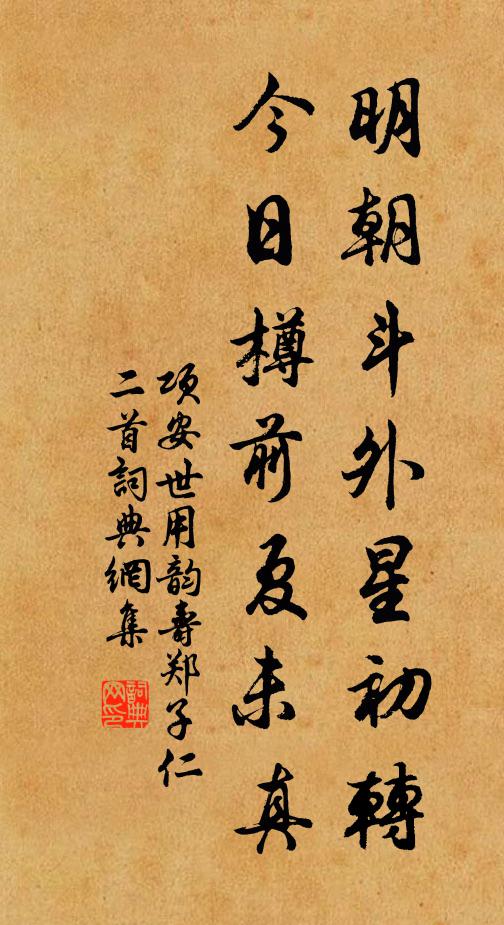 明朝斗外星初轉
今日樽前夏未真
项安世用韵壽郑子仁
二首詞典網集
詞典
网印